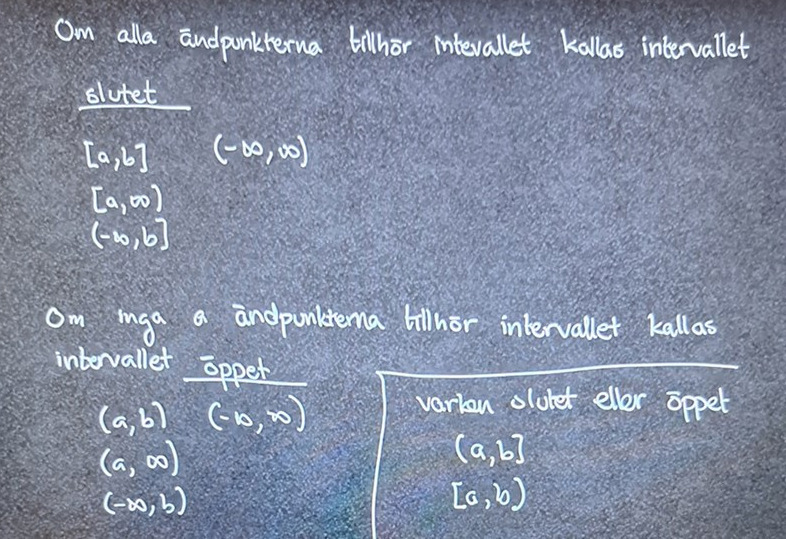 Om alla ändpunkterna tillhör intevallet kallas intervallet
slutet
[a,b] (-∞,∞)
[a,∞)
(-∞,b]
Om inga a ändpunkterna tillhör intervallet kallas
intervallet öppet
(a,b) (-∞,∞)
(a,∞)
(-∞,b)
varken slutet eller öppet
(a,b]
[a,b)